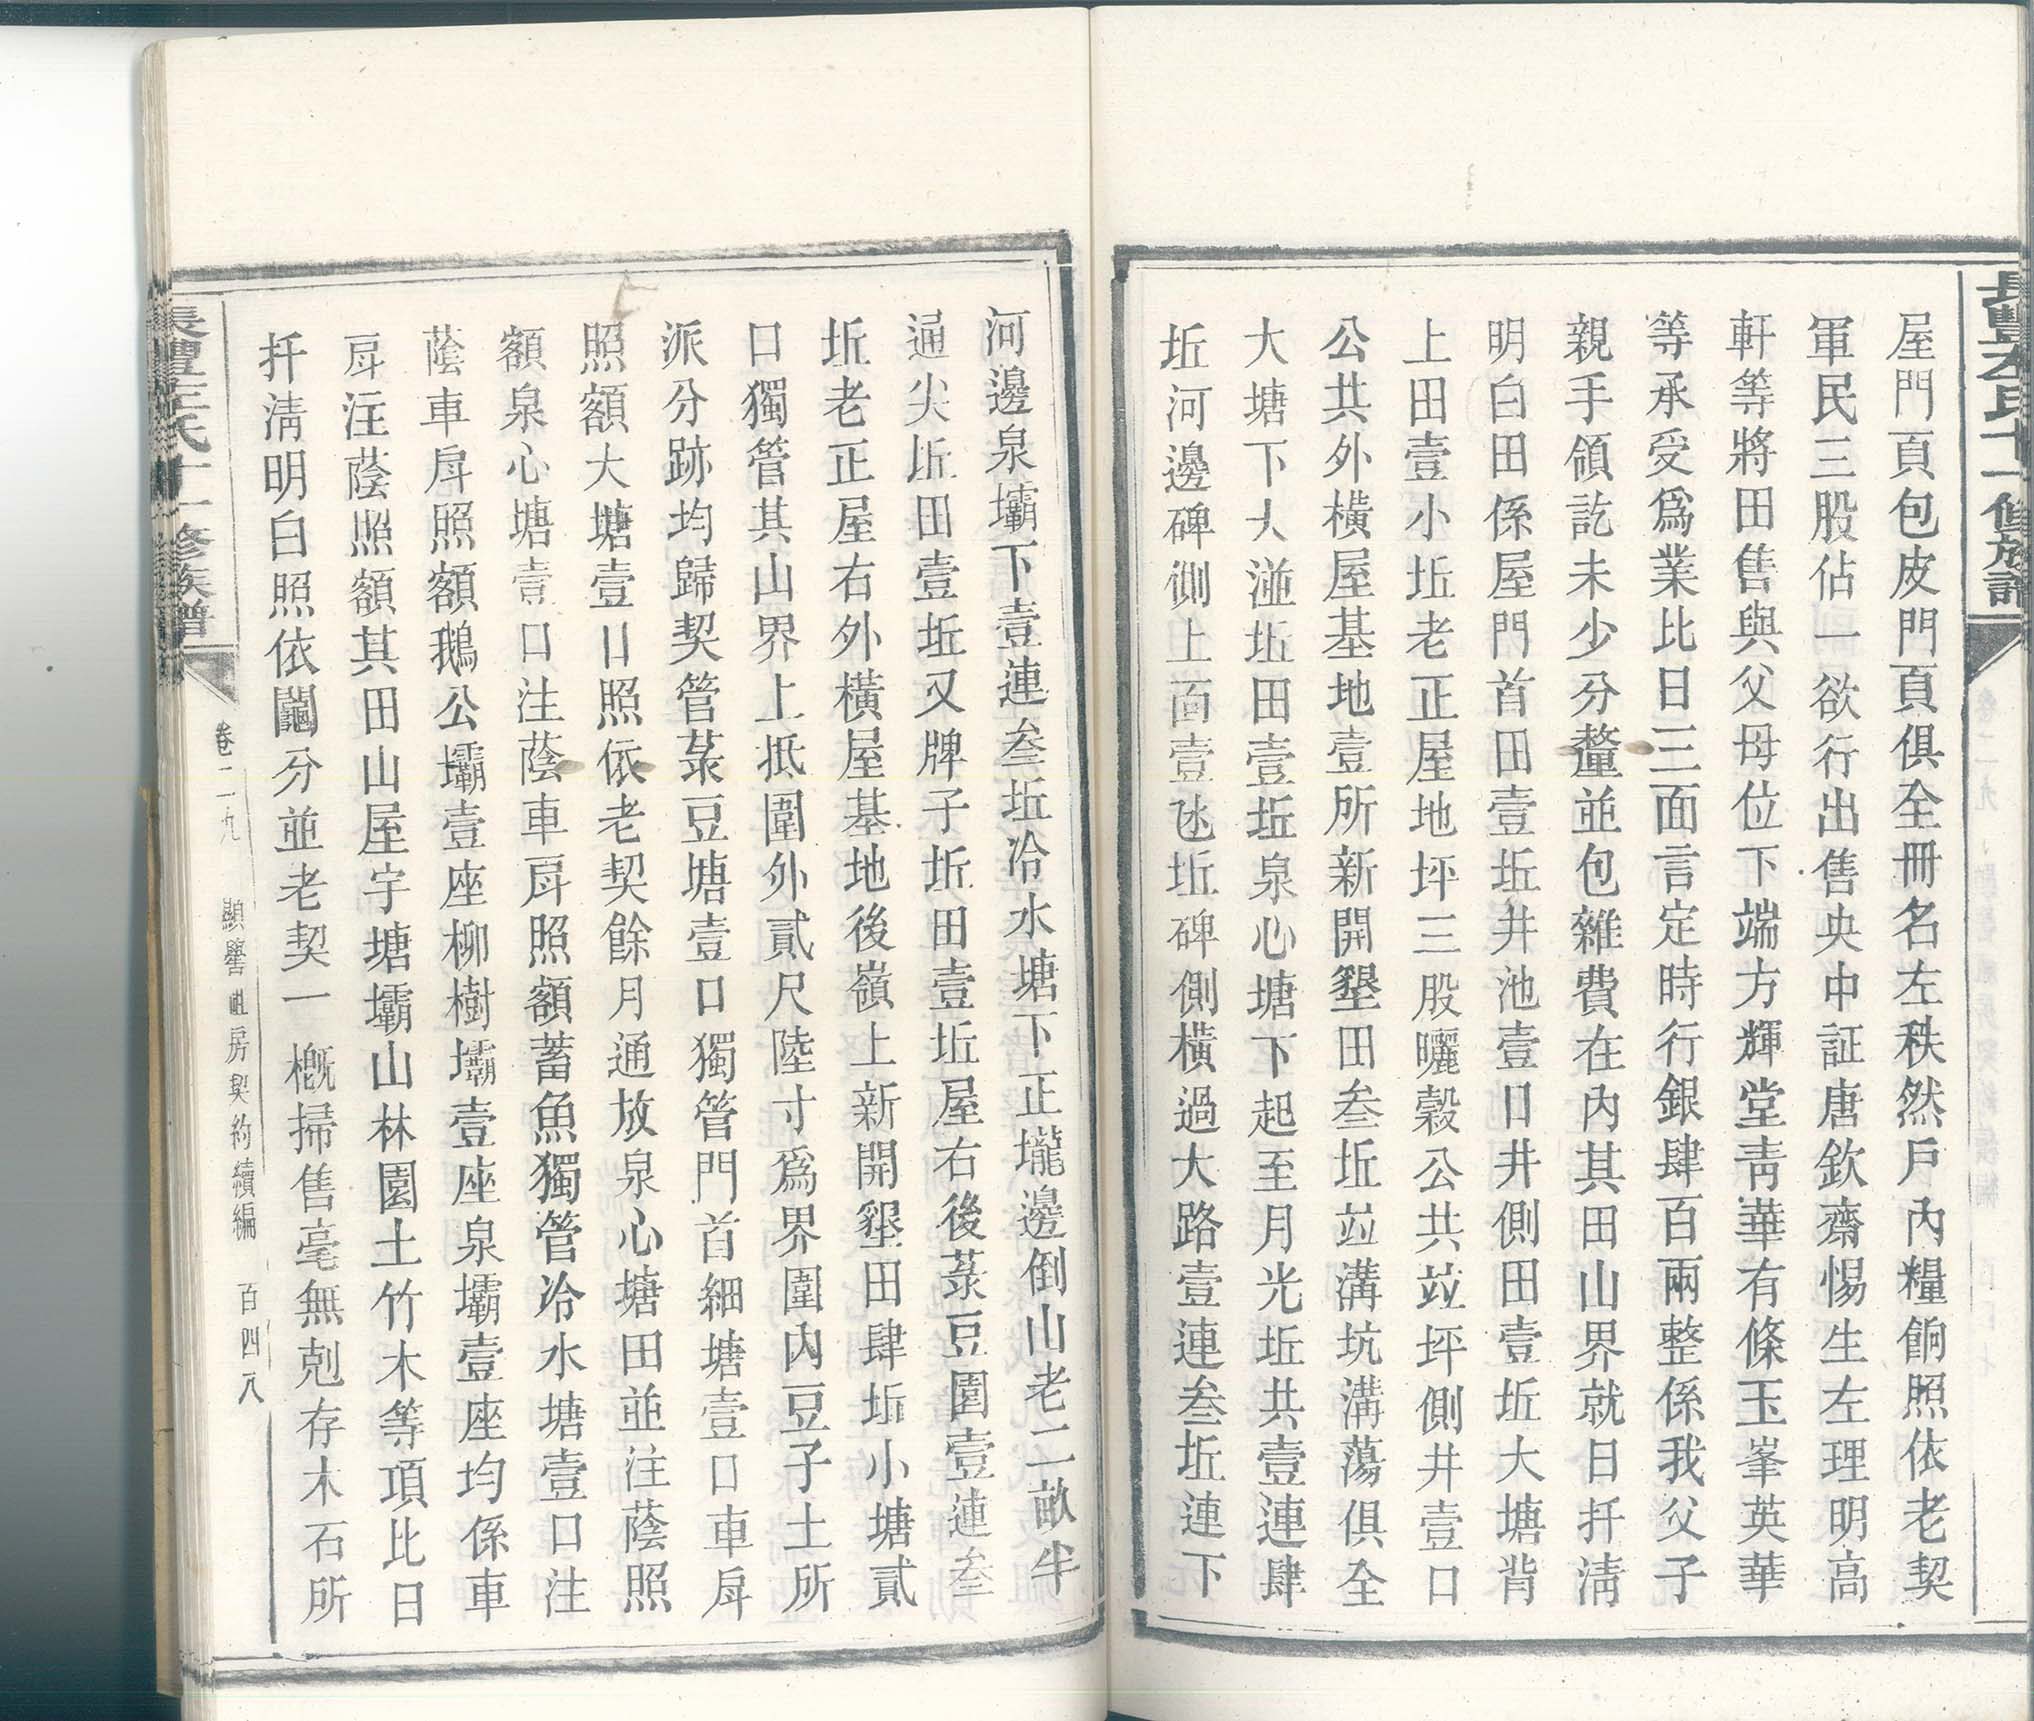 長豐左氏十一修族譜
屋門頁包皮門頁俱全冊名左秩然戶內糧餉照依老契
軍民三股佔一欲行出售央中証唐欽齋惕生左理明高
軒等將田售與父母位下端方輝堂靑華有條玉峯英華
等承受爲業比日三面言定時行銀肆百兩整係我父子
親手領訖未少分釐並包雜費在內其田山界就日扦淸
明白田係屋門首田壹坵井池壹口井側田壹坵大塘背
上田壹小坵老正屋地坪三股曬穀公共竝坪側井壹口
公共外橫屋基地壹所新開墾田叁坵竝溝坑溝蕩俱全
大塘下大湴坵田壹坵泉心塘下起至月光坵共壹連肆
坵河邊碑側上面壹坵碑側橫過大路壹連叁坵連下
河邊泉壩下壹連叁坵冷水塘下正壠邊倒山老二畝半
通尖坵田壹坵又牌子坵田壹坵屋右後菉豆園壹連叁
坵老正屋右外橫屋基地後嶺上新開墾田肆坵小塘貳
口獨管其山界上抵圍外貳尺陸寸爲界圍內豆子土所
派分跡均歸契管菉豆塘壹口獨管門首細塘壹口車戽
照額大塘壹口照依老契餘月通放泉心塘田並注蔭照
額泉心塘壹口注蔭車戽照額蓄魚獨管冷水塘壹口注
蔭車戽照額鵝公壩壹座柳樹壩壹座泉壩壹座均係車
戽注蔭照額其田山屋宇塘壩山林園土竹木等項比日
扦淸明白照依鬮分並老契一槪掃售毫無剋存木石所
長豐左氏十一修族譜
卷二九
顯譽祖房契約續編
百四八